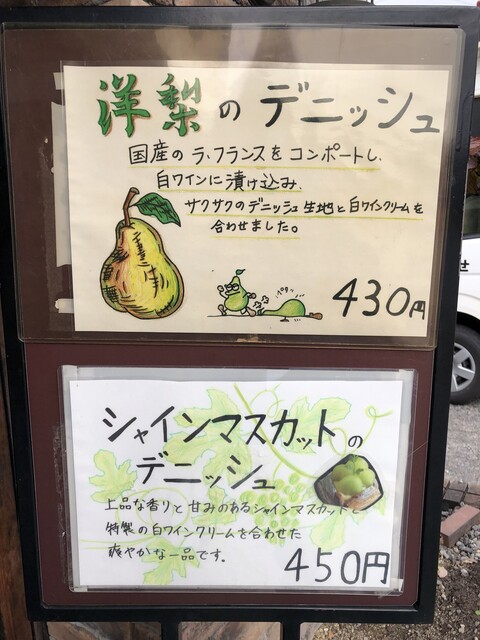 洋梨のデニッシュ
国産のラ・フランスをコンポートし、
白ワインに漬け込み、
サクサクのデニッシュ生地と白ワインクリームを
合わせました。
430円
シャインマスカットの
デニッシュ
上品な香りと甘みのあるシャインマスカットと
特製の白ワインクリームを合わせた
爽やかな一品です。
450円
せ